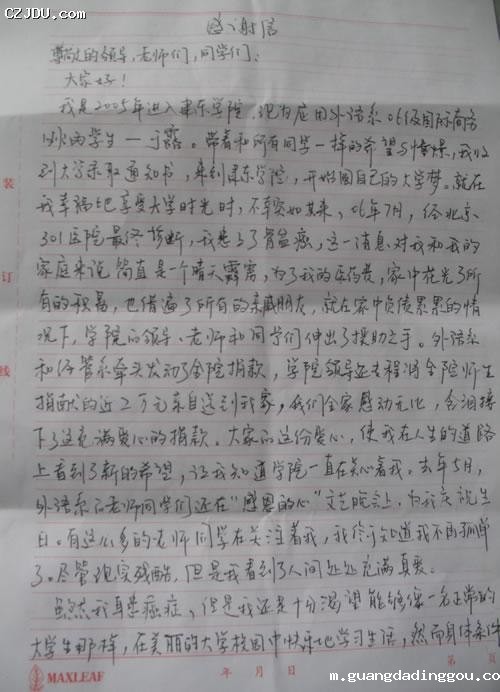 CZJDU.com
感谢信
尊敬的领导、老师们、同学们:
大家好!
我是2005年进入建东学院,现为应用外语系06级国际商务
班的学生—于露。带着和所有同学一样的希望与憧憬,我收
到大学录取通知书,来到建东学院,开始圆自己的大学梦。就在
我幸福地享受大学时光时,不幸突如其来,06年7月,经北京
301医院最终诊断,我患了骨盆癌,这一消息对我和我的
家庭来说简直是一个晴天霹雳,为了我的医药费,家中花光了所
有的积蓄,也借遍了所有的亲戚朋友,就在家中负债累累的情
况下,学院的领导、老师和同学们伸出了援助之手。外语系
和经管系牵头发动了全院捐款,学院领导还专程将全院师生
捐献的近2万元亲自送到我家,我们全家感动无比,含泪接
下了这充满爱心的捐款。大家的这份爱心,使我在人生的道路
上看到了新的希望,让我知道学院一直在关心着我。去年5月,
外语系的老师同学们还在"感恩的心"文艺晚会上,为我庆祝生
日。有这么多的老师同学在关注着我,我终于知道我不再孤单
了。尽管现实残酷,但是我看到了人间处处充满真爱。
虽然我身患癌症,但是我还是十分渴望能够像一名正常的
大学生那样,在美丽的大学校园中快乐地学习生活,然而身体条件
装
订
线
MAXLEAF
年 月 日
第 页
m.guangdadinggou.com